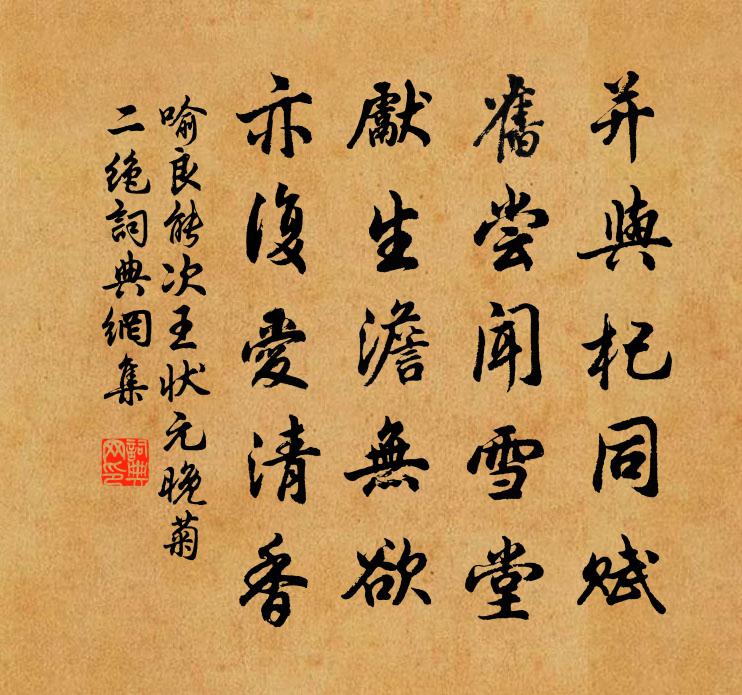 并與杞同賦
舊尝闻雪堂
獻生澹無欲
亦復愛清香
喻良能次王状元晚菊
二绝詞典網集
詞典网印